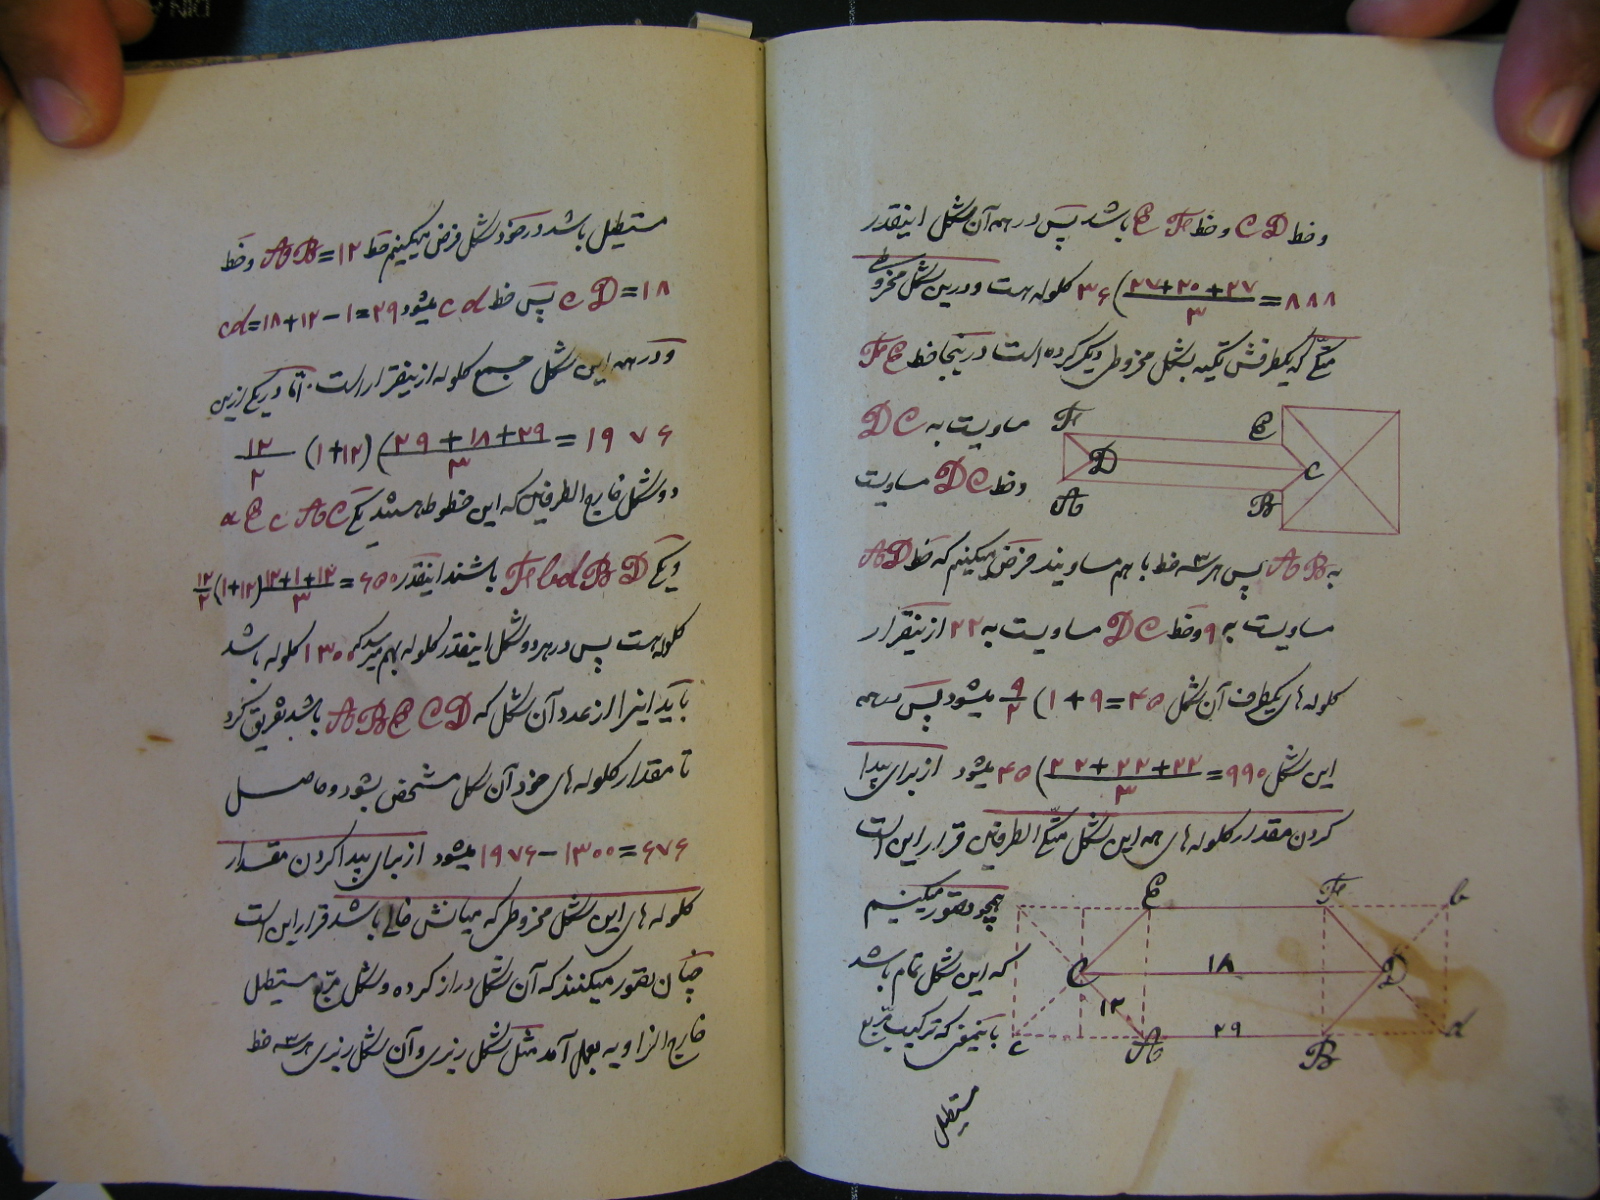 و خط CD و خط EF باشد پس در همه آن شکل اینقدر
۳۶ (۲۷+۲۰+۲۷ / ۳ = ۸۸۸ کلوله هست و درین شکل مخروطی
که یکطرفش تکیه بشکل مخروطی دیگر کرده است در ینجا خط FE
مساویست به DC
و خط DC مساویست
F E D C A B
به AB پس هر سه خط با هم مساویند فرض میکنیم که خط AD
مساویست به ۹ و خط DC مساویست به ۲۲ از ینقرار
کلوله های یکطرف آن شکل ۴۵ = ۹ + ۱) ۹/۲ میشود پس همه
این شکل ۹۹۰ = ۲۲+۲۲+۲۲ / ۳ )۴۵ میشود از برای پیدا
کردن مقدار کلوله های همه این شکل متکی الطرفین قرار این است
همچو تصور میکنیم
که این شکل تمام باشد
باینمعنی که ترکیب مربع
E F b C ۱۸ D ۱۲ c A ۲۹ B d
مستطیل
مستطیل باشد در خود شکل فرض میکنیم خط AB=۱۲ و خط
CD=۱۸ پس خط cd میشود cd=۱۸+۱۲-۱=۲۹
و در همه این شکل جمع کلوله ازینقرار است اما در یکی ازین
۱۲/۲ (۱+۱۲) (۲۹+۱۸+۲۹ / ۳ = ۱۹۷۶
دو شکل خارج الطرفین که این خطوط هستند یکی aEcAC
و یکی FbdBD باشند اینقدر ۶۵۰ = ۱۲+۱+۱۲ / ۳ (۱+۱۲) ۱۲/۲
کلوله هست پس در هر دو شکل اینقدر کلوله بهم میرسد که ۱۳۰۰ کلوله باشد
باید اینرا از عدد آن شکل که ABECD باشد تفریق کرد
تا مقدار کلوله های خود آن شکل مشخص بشود و حاصل
۱۹۷۶-۱۳۰۰=۶۷۶ میشود از برای پیدا کردن مقدار
کلوله های این شکل مخروطی که میانش خالی باشد قرار این است
چنان تصور میکنند که آن شکل دراز کرده و شکل مربع مستطیل
خارج الزاویه بعمل آمد مثل شکل زیری و آن شکل زیری هر سه خط